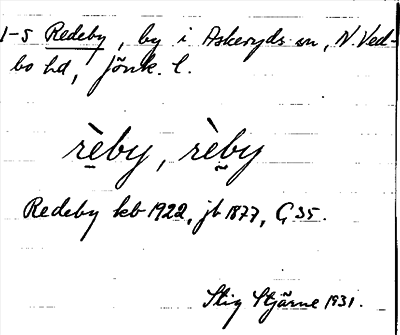 1-5 Redeby, by i Askeryds sn, N. Ved-
bo hd, Jönk. l.
rè̱by, rè̮by
Redeby kb 1922, jb 1877, G 35.
Stig Stjärne 1931.